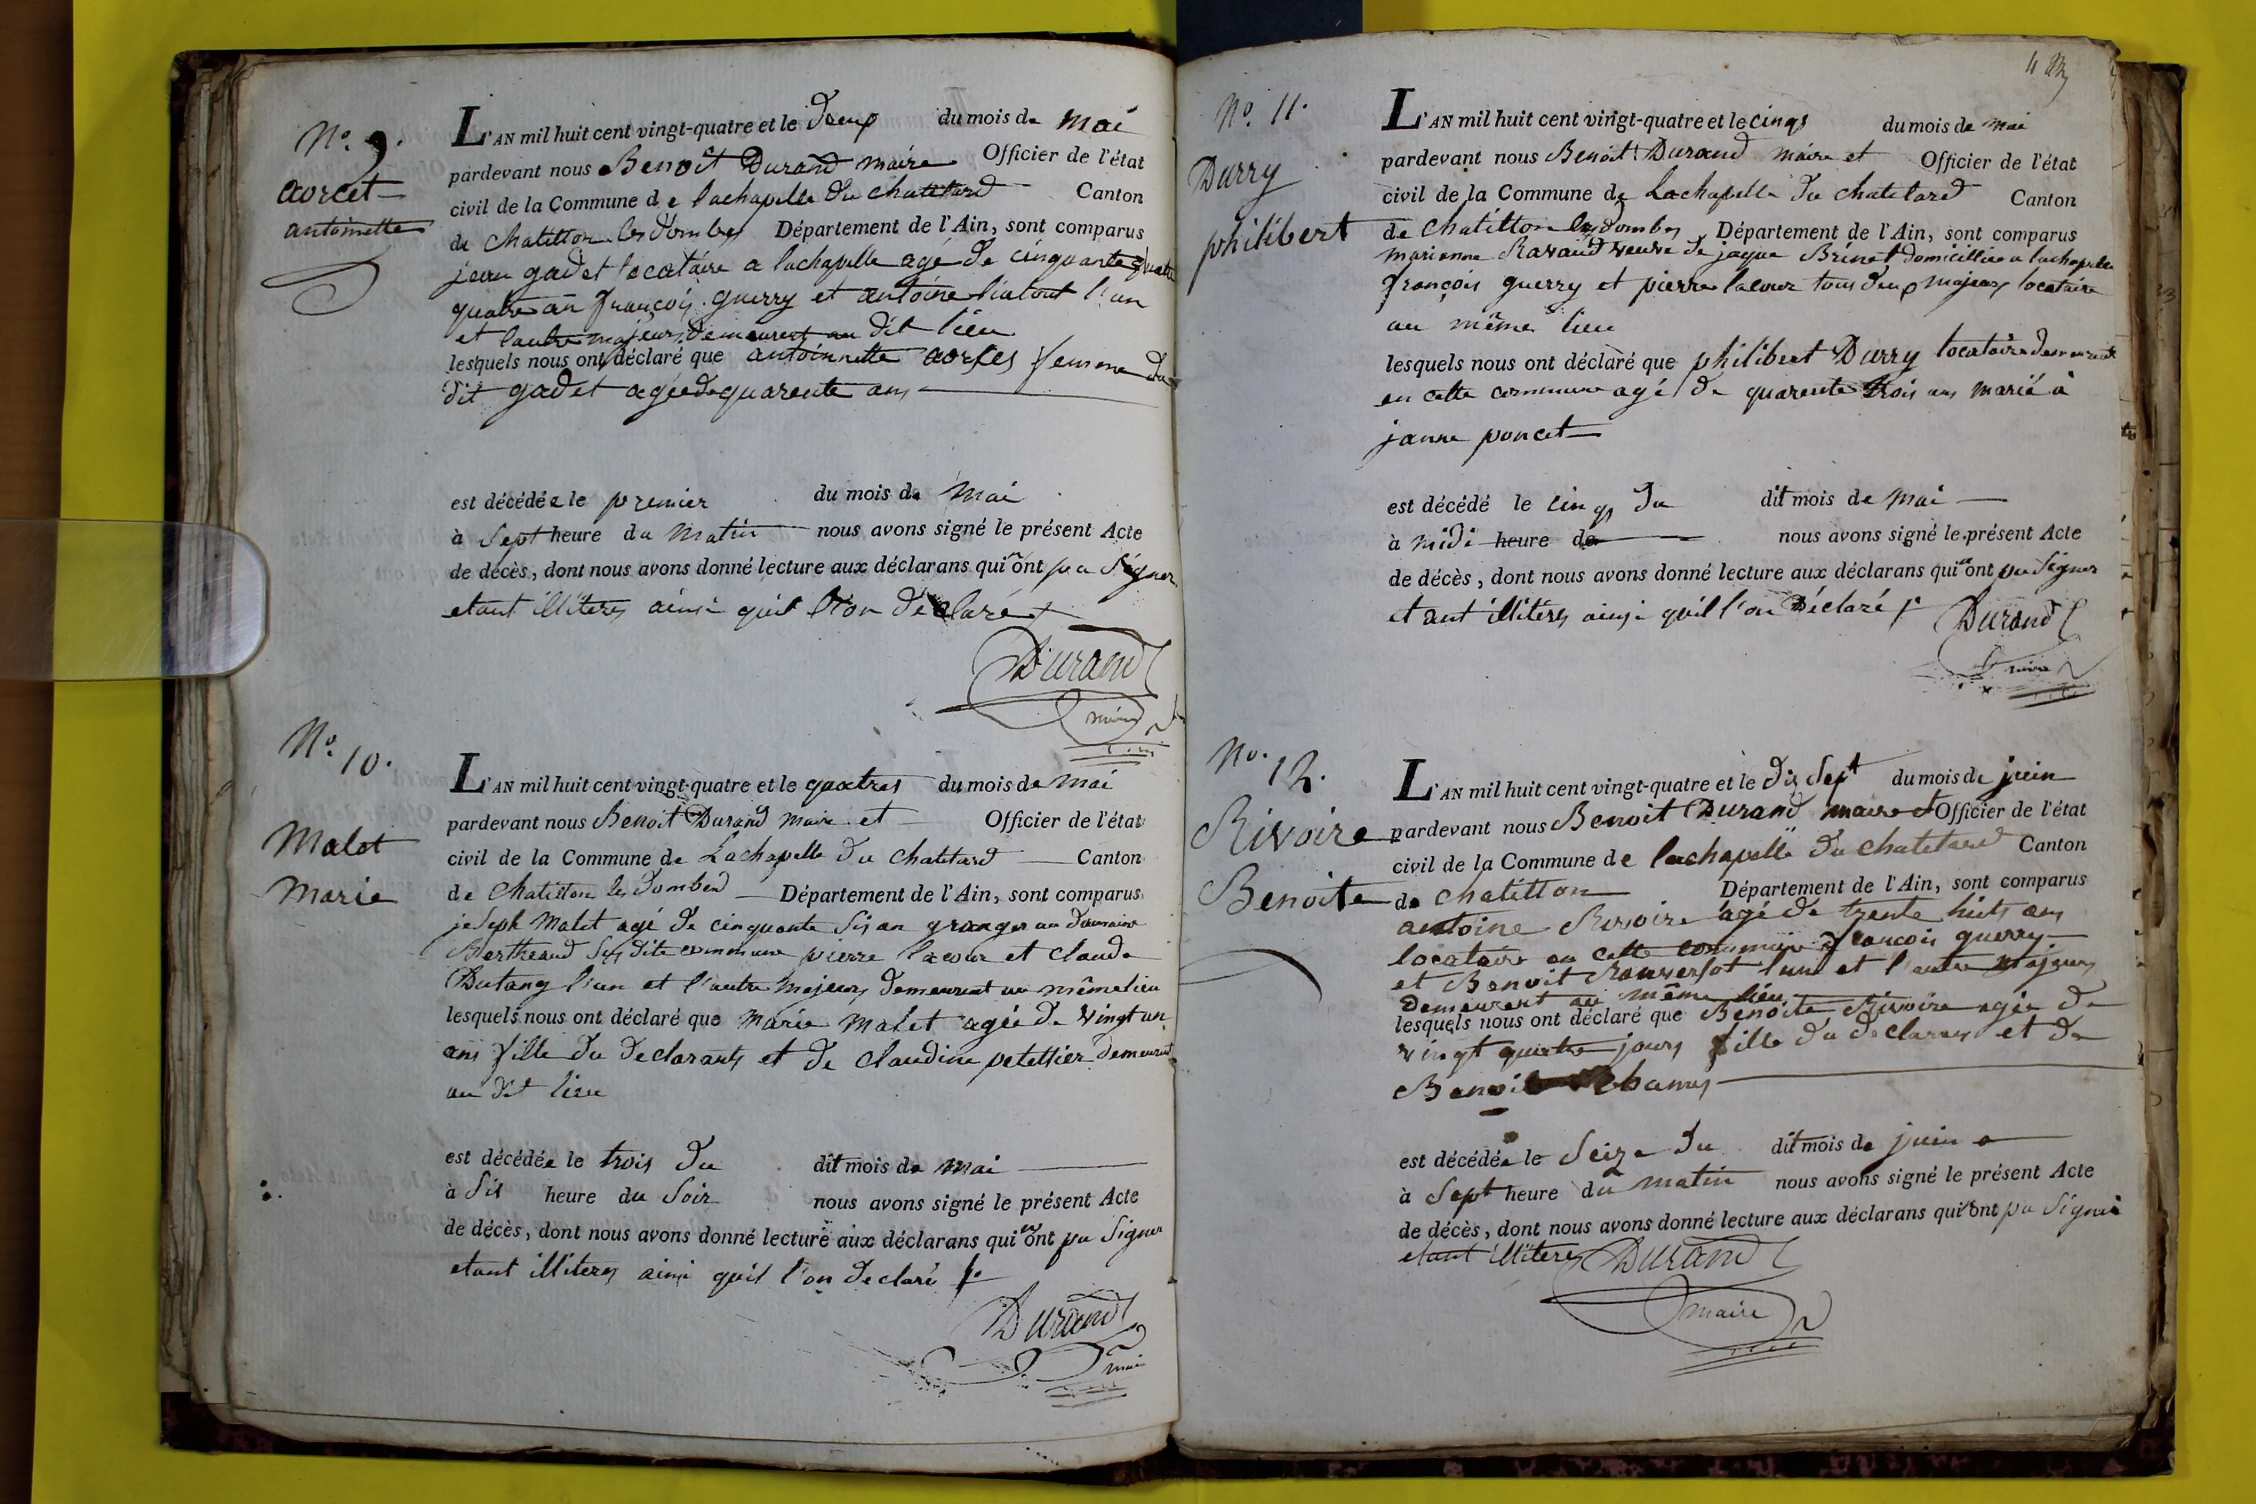 No. 9.
aorcet
antoinette
L'AN mil huit cent vingt-quatre et le deux du mois de mai
pardevant nous Benoît Durand maire Officier de l'état
civil de la Commune de lachapelle du chatelard Canton
de chatillon les dombes Département de l'Ain, sont comparus
jean gadet locataire a lachapelle agé de cinquante quatre
quatre an françois guerry et antoine liatout l'un
et l'autre majeurs demeurent au dit lieu
lesquels nous ont déclaré que antoinnette aorses femme du
dit gadet agée de quarente ans
est décédée le premier du mois de mai
à sept heure du matin nous avons signé le présent Acte
de décès, dont nous avons donné lecture aux déclarans qui n'ont pu signer
etant illiteres ainsi quil l'on déclaré
Durand
maire
No. 10.
Malet
Marie
L'AN mil huit cent vingt-quatre et le quatres du mois de mai
pardevant nous Benoit Durand maire et Officier de l'état
civil de la Commune de Lachapelle du chatelard Canton
de chatillon les dombes Département de l'Ain, sont comparus
joseph Malet agé de cinquante sis an granger au domaine
Bertheaud susdite commune pierre lacour et claude
Dutang l'un et l'autre majeurs demeurent au même lieu
lesquels nous ont déclaré que marie malet agée de vingt un
ans fille du declarants et de claudine peteltier demeurent
au dit lieu
est décédée le trois du dit mois de mai
à sis heure du soir nous avons signé le présent Acte
de décès, dont nous avons donné lecture aux déclarans qui n'ont pu signer
etant illiteres ainsi quil l'on declaré
Durand
maire
4
No. 11.
Durry
philibert
L'AN mil huit cent vingt-quatre et le cinqs du mois de mai
pardevant nous Benoit Durand maire et Officier de l'état
civil de la Commune de Lachapelle du chatelard Canton
de chatillon les dombes Département de l'Ain, sont comparus
marianne Ravaud veuve de jaque Brinet domicilliée a lachapelle
françois guerry et pierre lacour tous deux majeurs locataire
au même lieu
lesquels nous ont déclaré que philibert Durry locataire demeurent
en cette commune agé de quarente trois ans marié à
janne poncet
est décédé le cinqs du dit mois de mai
à midi heure de nous avons signé le présent Acte
de décès, dont nous avons donné lecture aux déclarans qui n'ont pu signer
et ant illiteres ainsi quil l'on déclaré
Durand
maire
No. 12.
Rivoire
Benoite
L'AN mil huit cent vingt-quatre et le dis sept du mois de juin
pardevant nous Benoit Durand maire et Officier de l'état
civil de la Commune de lachapelle du chatelard Canton
de chatillon Département de l'Ain, sont comparus
antoine Rivoire agé de trente huits ans
locataire en cette commune françois guerry
et Benoit Ranversot l'un et l'autre majeurs
demeurent au même lieu
lesquels nous ont déclaré que Benoite Rivoire agée de
vingt quatre jours fille du declarans et de
Benoite
est décédée le seize du dit mois de juin
à sept heure du matin nous avons signé le présent Acte
de décès, dont nous avons donné lecture aux déclarans qui n'ont pu signer
etant illiteres Durand
maire